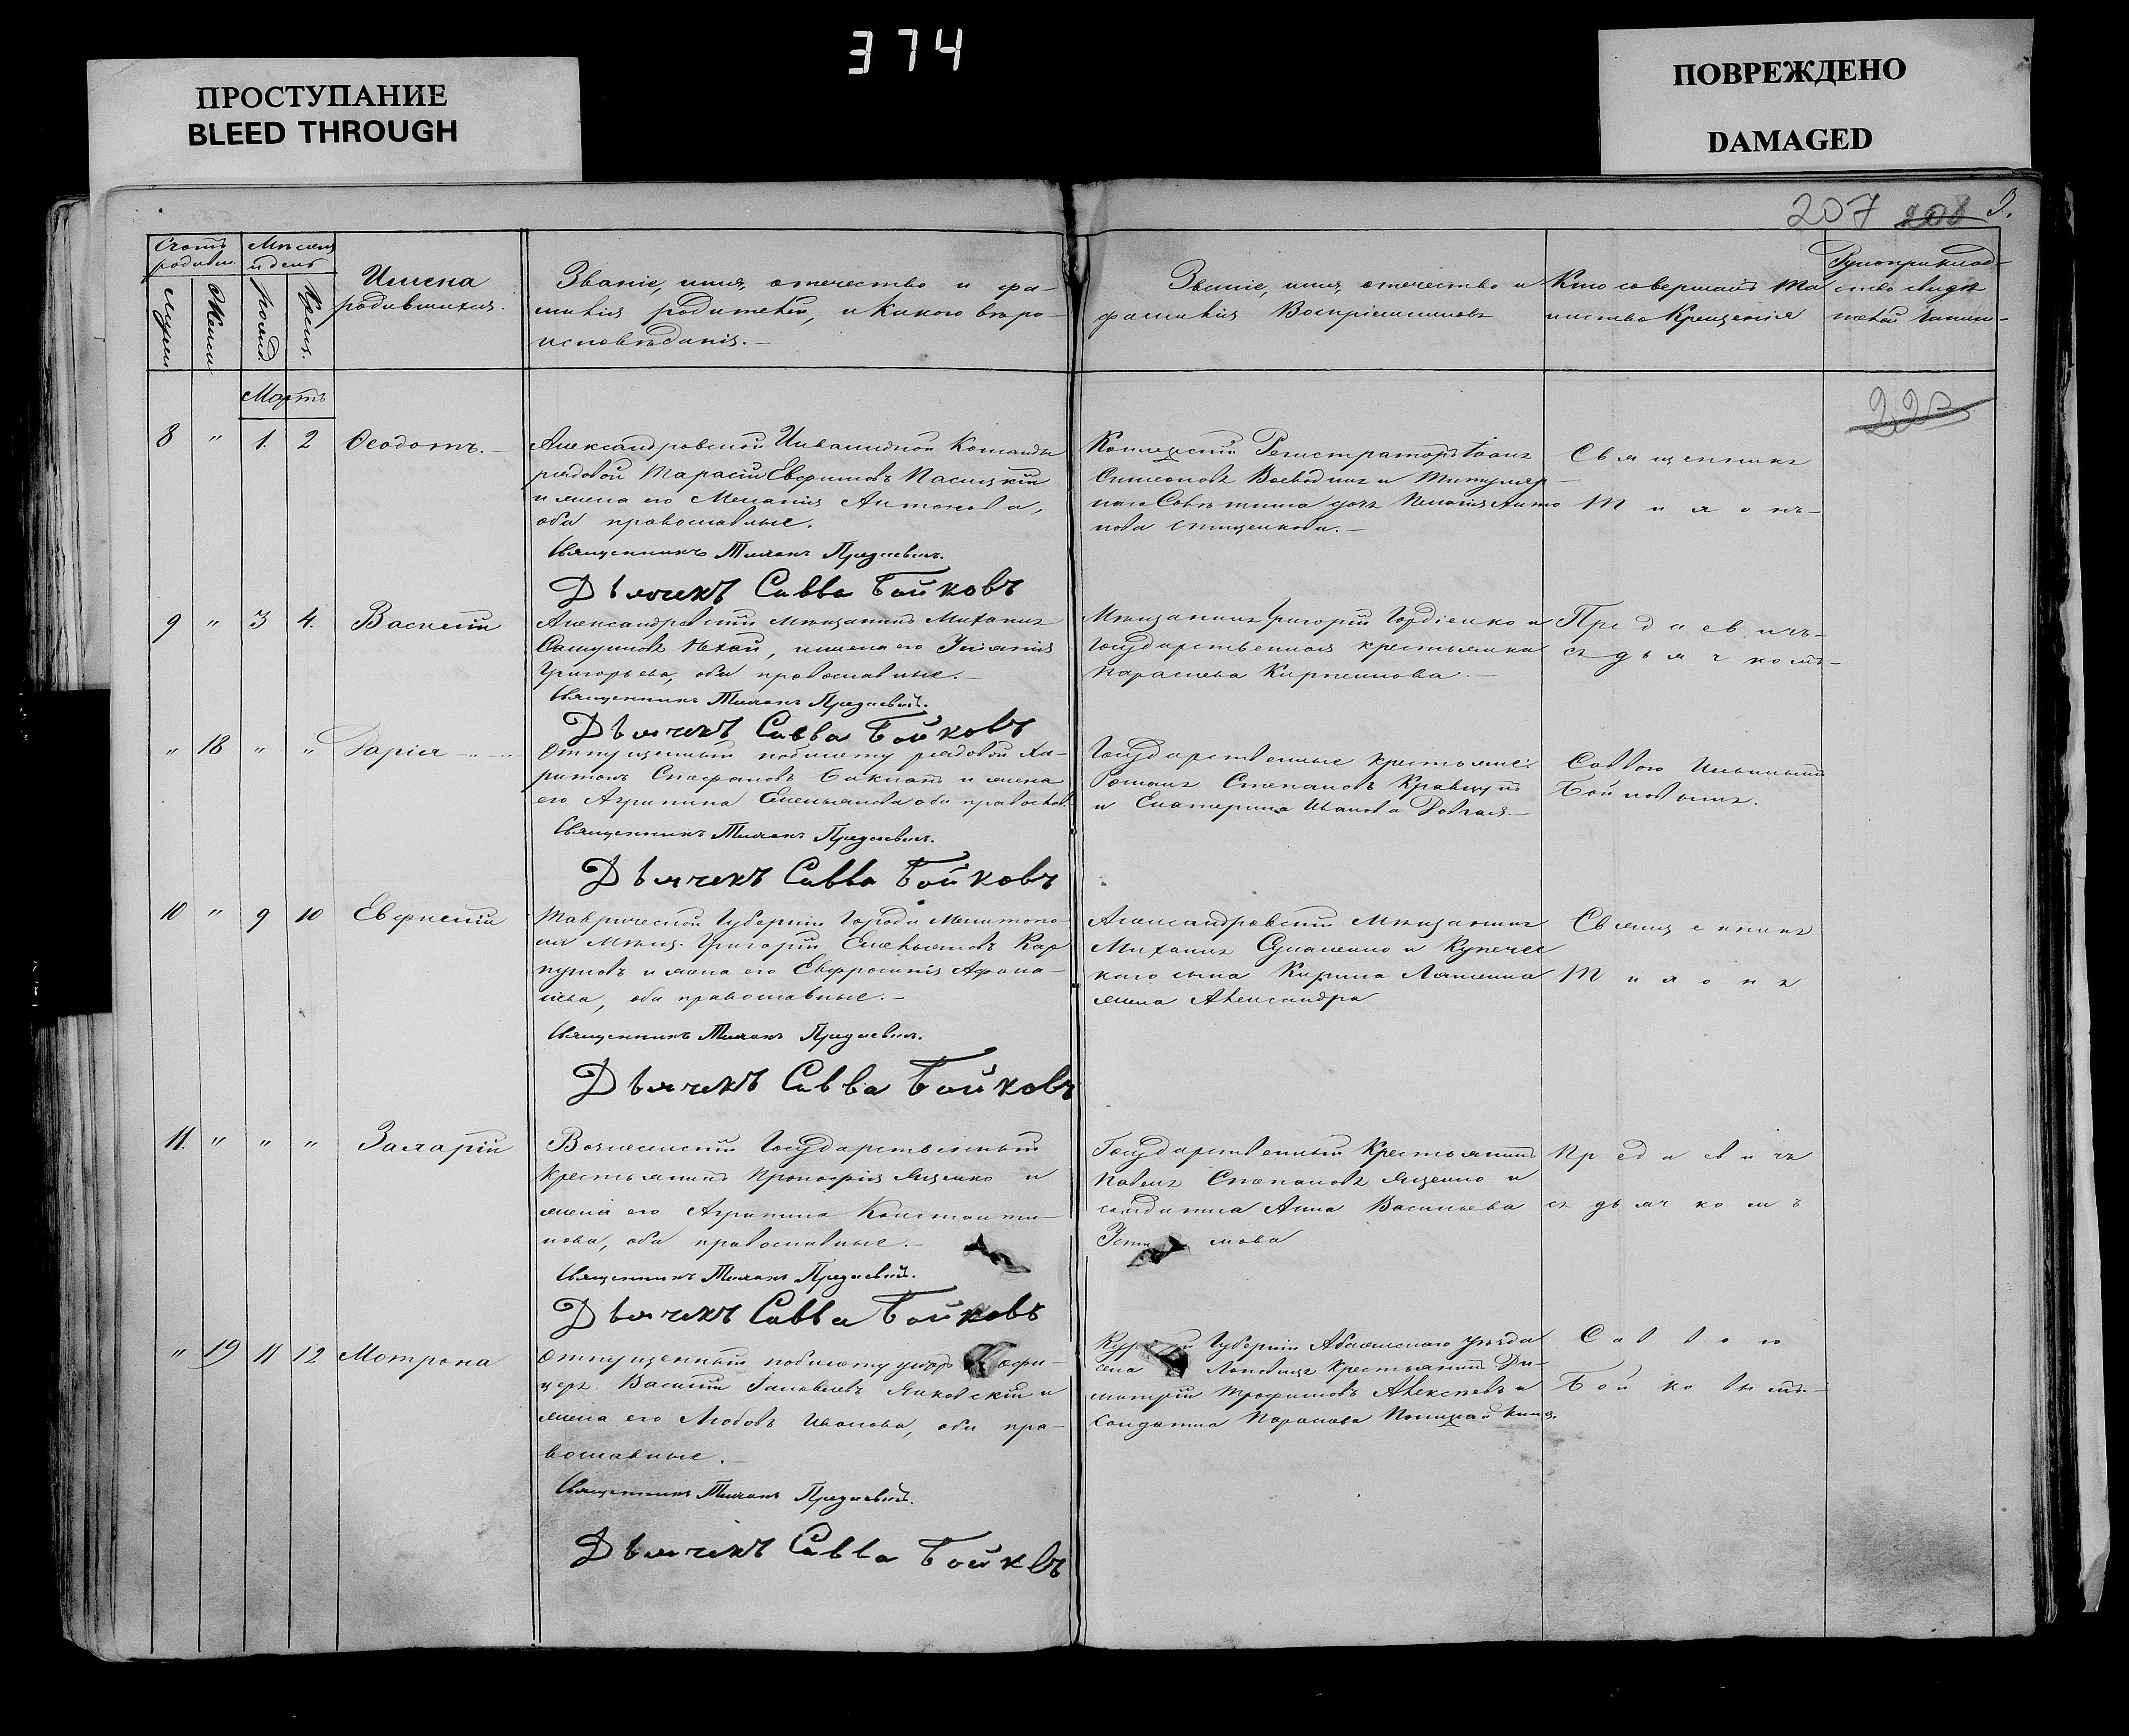 374
ПРОСТУПАНИЕ
BLEED THROUGH
ПОВРЕЖДЕНО
DAMAGED
207 208 9.
Счотъ родивш.
Мѣсяцъ и день
Мужеск.
Женск.
рожд.
Крещ.
Имена
родившихся.
Званіе, имя, отечество и фа-
милія родителей, и какого вѣро-
исповѣданія.
Званіе, имя, отечество и
фамилія Воспріемниковъ
Кто совершалъ Та
инство Крещенія
Рукоприклад-
ство свидѣ
телей
220
Мартъ
8 " 1. 2 Ѳеодотъ.
Александровской Инвалидной Команды
рядовой Тарасій Евфимовъ
и жена его Меланія Антонова,
оба православные.
Священникъ Тихонъ Предаевичъ.
Дьячекъ Савва Бойковъ
Коллежскій Регистраторъ Іоанъ
Симеоновъ и Титуляр-
наго Совѣтника дочь Анто
нова
Священникъ
Тихонъ
9 " 3 4. Василій
Александровскій мѣщанинъ Михаилъ
, и жена его Іуліанія
Григорьева, оба православные.
Священникъ Тихонъ Предаевичъ.
Дьячекъ Савва Бойковъ
Мѣщанинъ Григорій Гордіенко и
Государственная крестьянка
Параскева
Предаевичъ
съ дьячкомъ
" 18 " " Дарія
Отпущенный по билету рядовой Ха-
ритонъ Стефановъ и жена
его Агрипина Емельянова оба православ.
Священникъ Тихонъ Предаевичъ.
Дьячекъ Савва Бойковъ
Государственные крестьяне:
Романъ Степановъ Кравцунъ
и Екатерина Иванова Довгая.
Саввою
Бойковымъ.
10 " 9 10 Евфимій
Таврической Губерніи Города Мелитопо-
ля Мѣщ. Григорій Емельяновъ Кар
пуховъ и жена его Евфросинія Афана-
сіева, оба православные.
Священникъ Тихонъ Предаевичъ.
Дьячекъ Савва Бойковъ
Александровскій Мѣщанинъ
Михаилъ и Купечес
каго сына Кирила Ляшенка
жена Александра
Священникъ
Тихонъ
11. " " " Захарій
Вознесенскій Государственный
крестьянинъ Прокофій Яценко и
жена его Агрипина Константи-
нова, оба православные.
Священникъ Тихонъ Предаевичъ.
Дьячекъ Савва Бойковъ
Государственный Крестьянинъ
Павелъ Степановъ Яценко и
солдатка Анна Васильева
Предаевичъ
съ дьячкомъ
" 19 11 12 Мотрона
Отпущенный по билету унтеръ офи-
церъ Василій Яковлевъ Янковскій и
жена его Любовь Иванова, оба пра-
вославные.
Священникъ Тихонъ Предаевичъ.
Дьячекъ Савва Бойквъ
Губерніи Уѣзда
села крестьянинъ Ди-
митрій Трофимовъ Алексѣевъ и
Солдатка Параскева
Саввою
Бойковымъ.